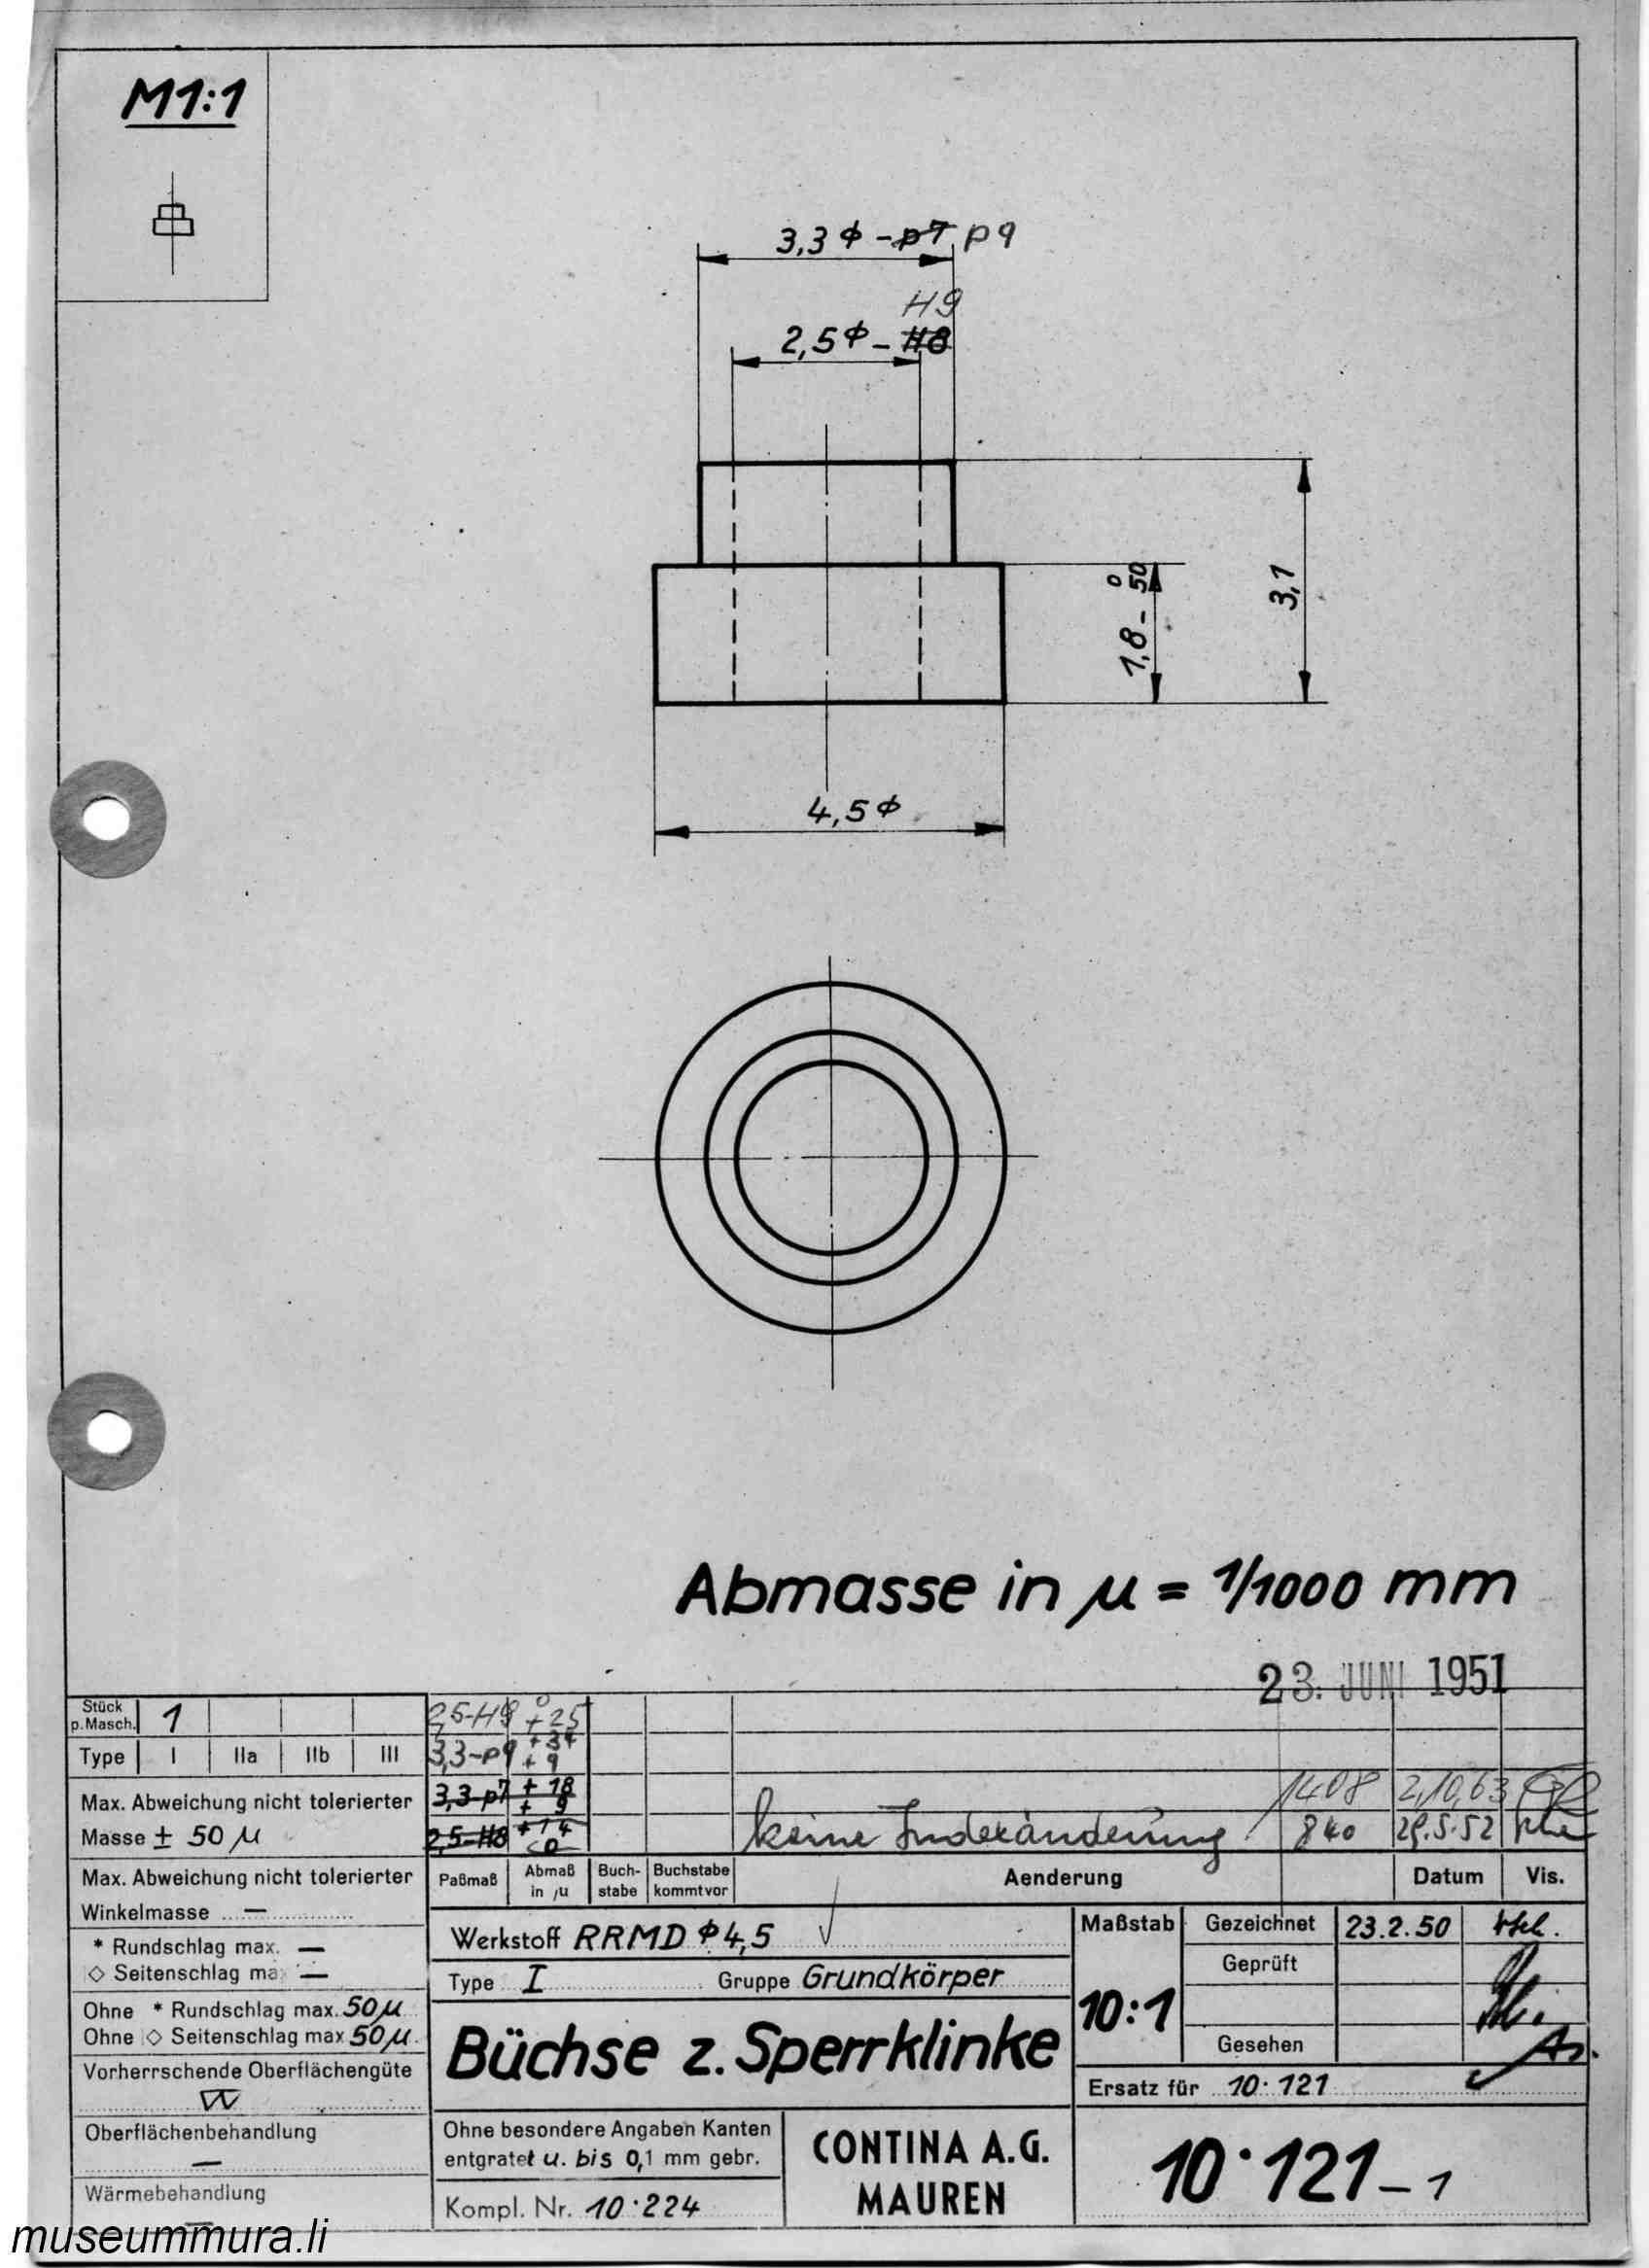 M1:1
3,3 ϕ - p7 p9
H9
2,5 ϕ - H8
0
1,8 - 50
3,1
4,5 ϕ
Abmasse in µ = 1/1000 mm
23. JUNI 1951
Stück
p. Masch. 1
Type I IIa IIb III
Max. Abweichung nicht tolerierter
Masse ± 50 µ
Max. Abweichung nicht tolerierter
Winkelmasse —
* Rundschlag max. —
◇ Seitenschlag ma —
Ohne * Rundschlag max. 50 µ
Ohne ◇ Seitenschlag max 50 µ.
Vorherrschende Oberflächengüte
▽▽
Oberflächenbehandlung
—
Wärmebehandlung
—
2,5-H9 0 +25
3,3-p9 +34 +9
3,3-p7 +18 +9
2,5-H8 +14 0
1408 2,10,63
keine Indexänderung 840 29.5.52
Paßmaß Abmaß in µ Buchstabe Buchstabe kommt vor Aenderung Datum Vis.
Werkstoff RRMD ϕ 4,5
Type I Gruppe Grundkörper
Büchse z. Sperrklinke
Ohne besondere Angaben Kanten
entgratet u. bis 0,1 mm gebr.
Kompl. Nr. 10·224
CONTINA A.G.
MAUREN
Maßstab
10:1
Gezeichnet 23.2.50
Geprüft
Gesehen
Ersatz für 10·121
10·121-1
museummura.li